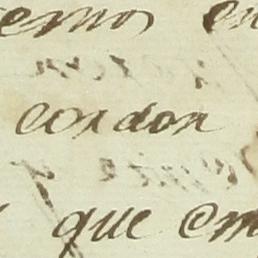 ernos en
cordon
que em